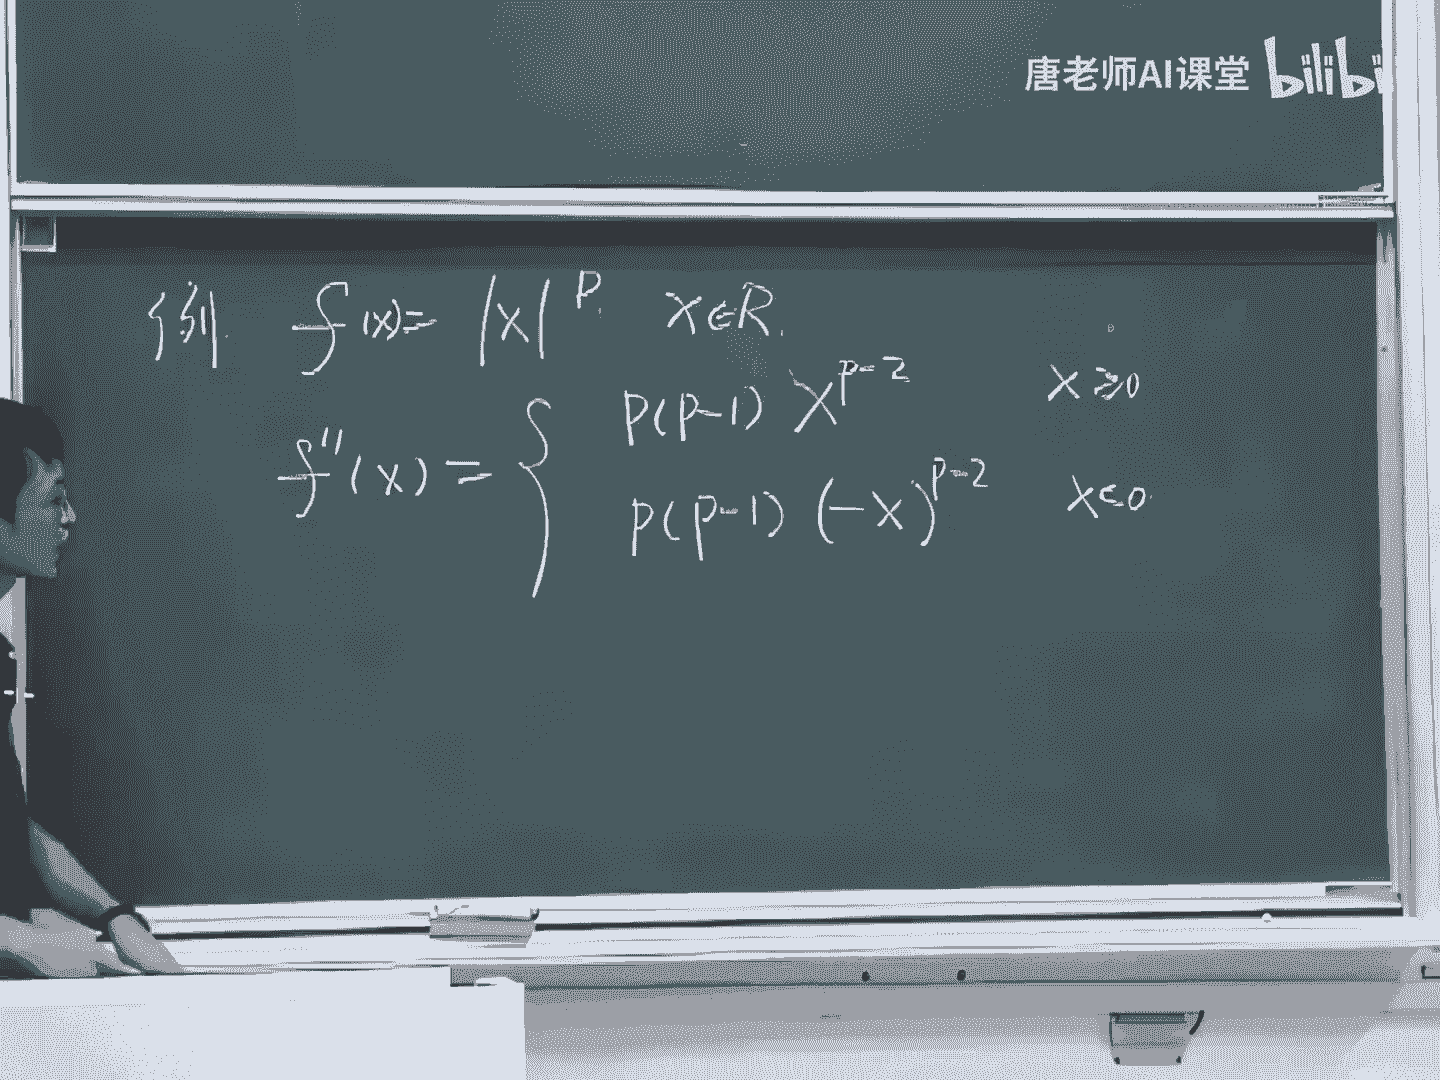 唐老师AI课堂 bilibi
例. f(x)= |x|^p. x∈R.
f''(x) = { p(p-1) x^{p-2} x≥0
p(p-1) (-x)^{p-2} x≤0.